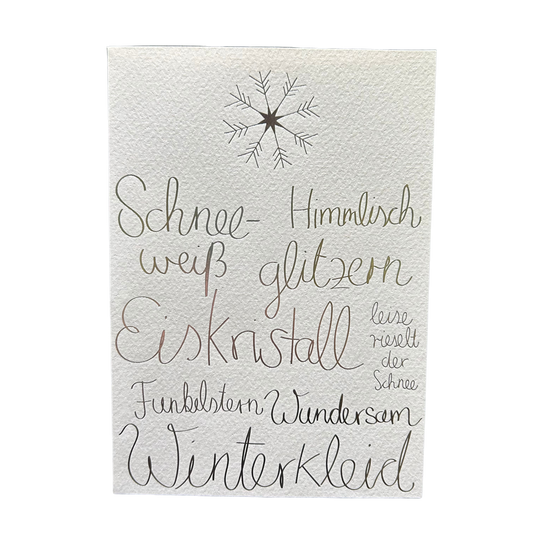 Schnee- Himmlisch
weiß glitzern
Eiskristall
leise
rieselt
der
Schnee
Funkelstern Wundersam
Winterkleid